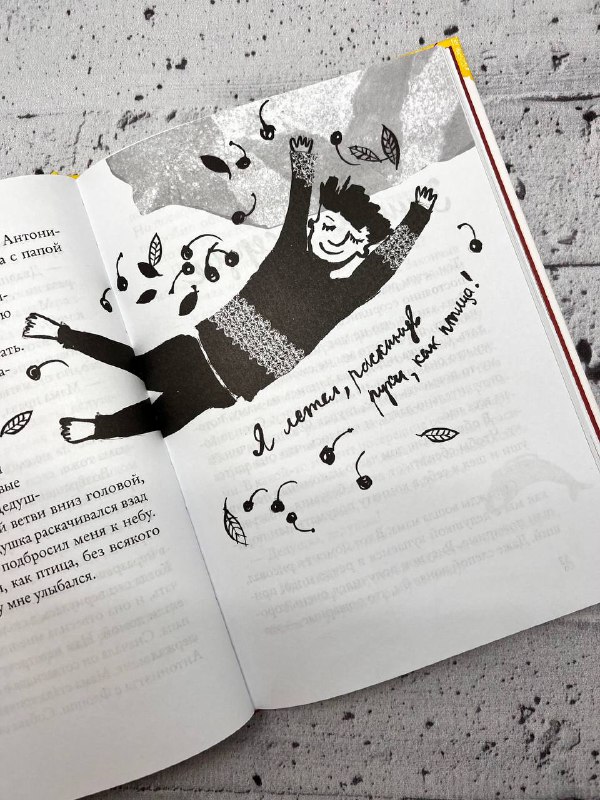 Антони-
а с папой
и-
ю
ать.
а-
и
вые
дедуш-
й ветви вниз головой,
душка раскачивался взад
подбросил меня к небу.
, как птица, без всякого
у мне улыбался.
Я летел, раскинув
руки, как птица!